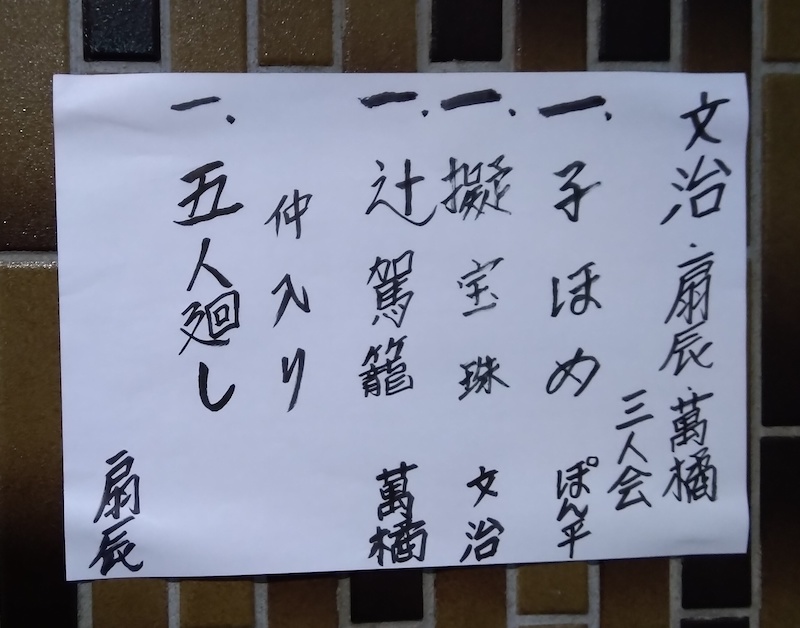 文治・扇辰・萬橘
三人会
一、子ほめ ぽん平
一、擬宝珠 文治
一、辻駕籠 萬橘
仲入り
一、五人廻し
扇辰